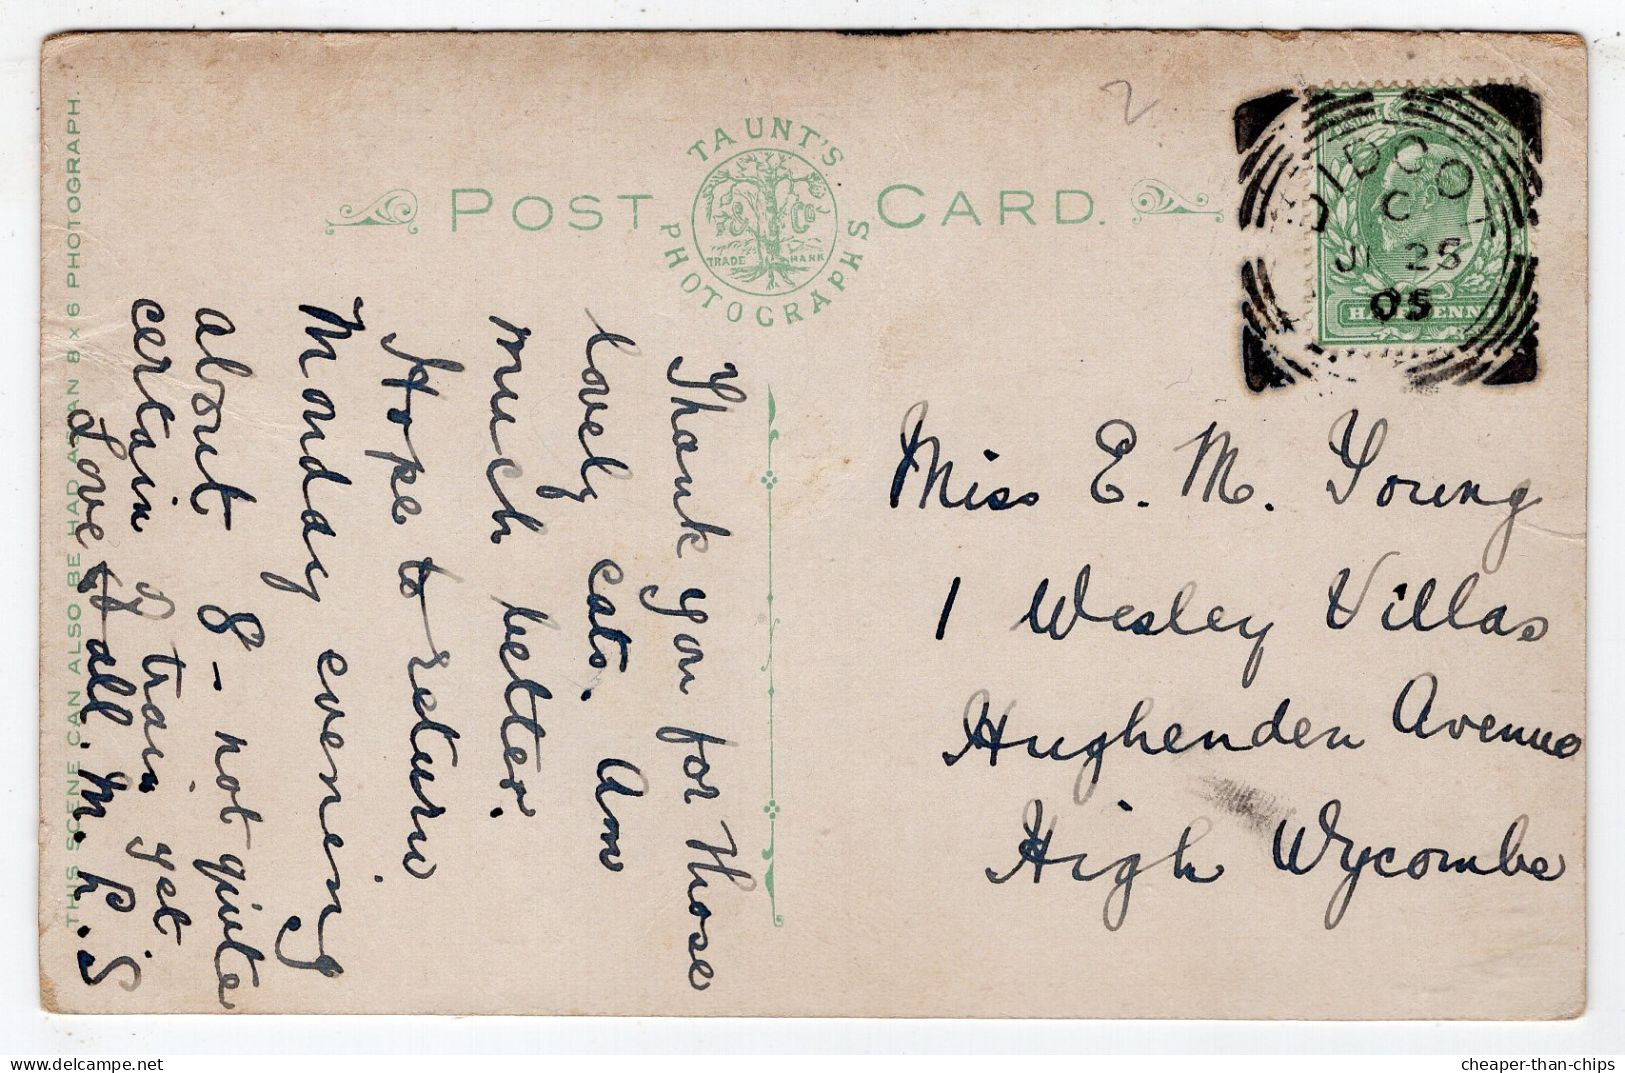 THIS SCENE CAN ALSO BE HAD AS AN 8 x 6 PHOTOGRAPH.
POST CARD.
TAUNT'S
& Co
TRADE MARK
PHOTOGRAPHS
2
DIDCOT
C
JY 25
05
HALFPENNY
Thank you for those
lovely cats. Am
much better.
Hope to return
Monday evening
about 8 - not quite
certain of train yet.
Love to all. M. L. S
Miss E. M. Young
1 Wesley Villas
Hughenden Avenue
High Wycombe
cheaper-than-chips